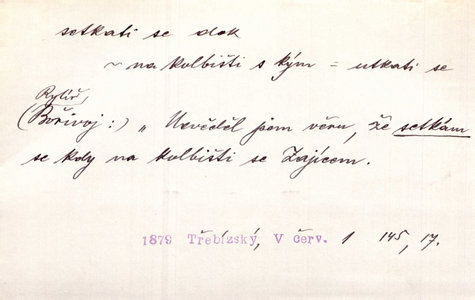 setkati se dok
~ na kolbišti s kým = utkati se
Rytíř,
(Bořivoj:) „ Nevěděl jsem věru, že setkám
se kdy na kolbišti se Zajícem.
1879 Třebízský, V červ. 1 145, 17.